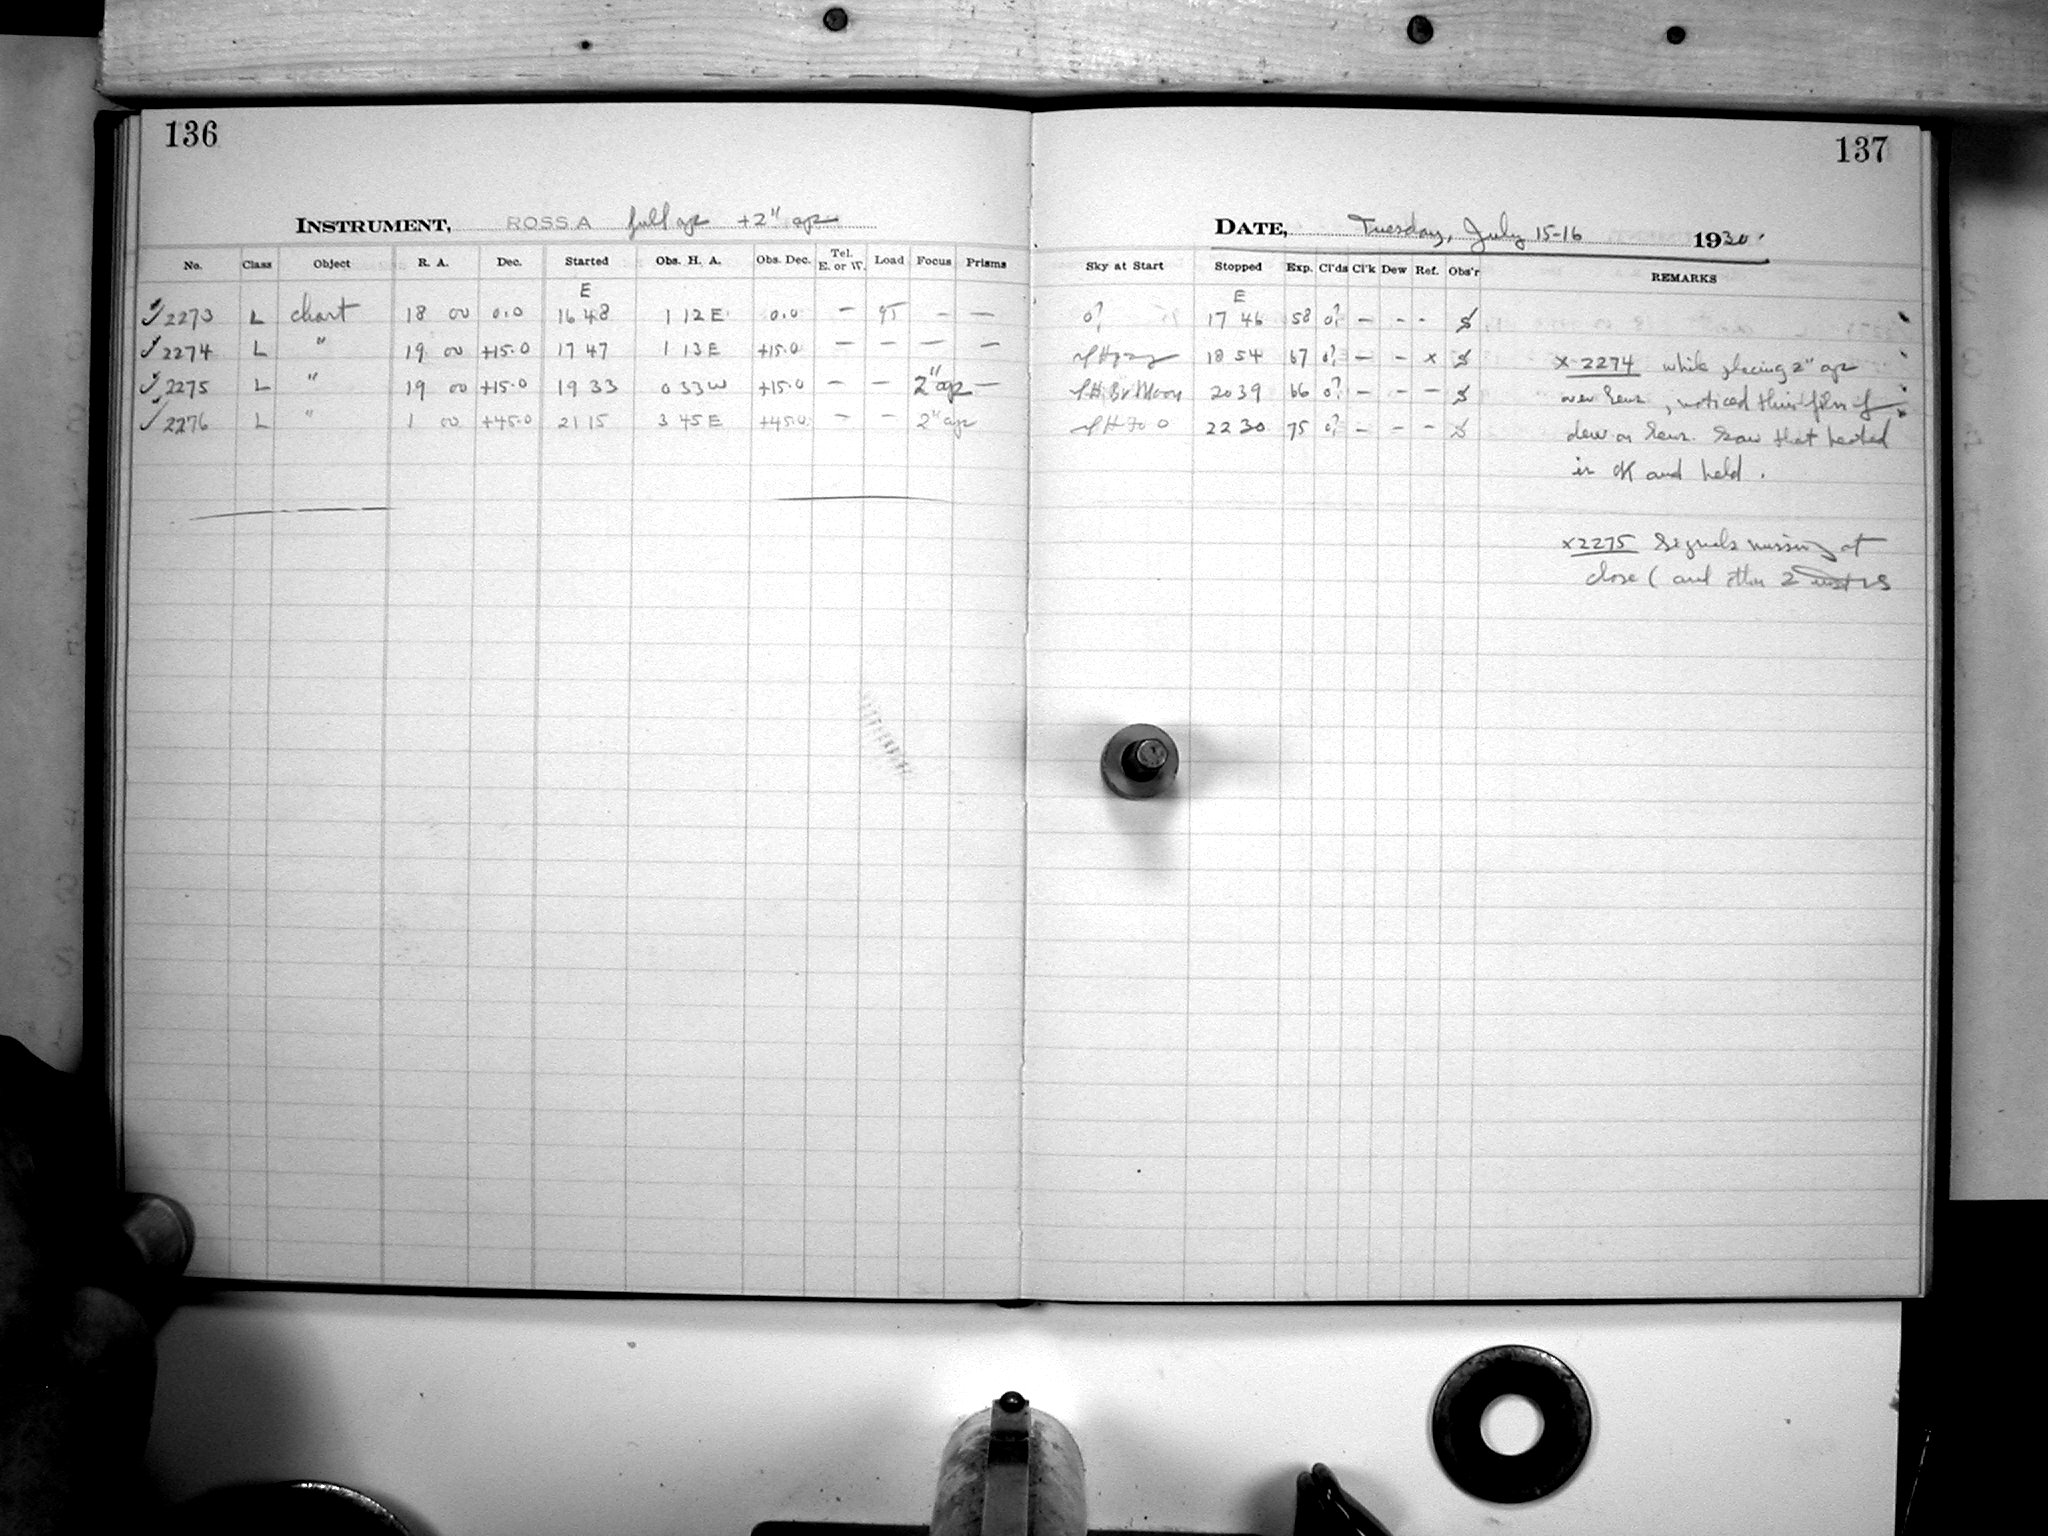 136
INSTRUMENT, ROSS A full ap +2" ap
No. Class Object R. A. Dec. Started Obs. H. A. Obs. Dec. Tel. E. or W. Load Focus Prisms
E
2273 L chart 18 00 0.0 16 48 1 12 E 0.0 — — —
2274 L " 19 00 +15.0 17 47 1 13 E +15.0 — — — —
2275 L " 19 00 +15.0 19 33 0 33 W +15.0 — — 2" ap —
2276 L " 1 00 +45.0 21 15 3 45 E +45.0 — — 2" ap
137
DATE, Tuesday, July 15-16 1930.
Sky at Start Stopped Exp. Cl'ds Cl'k Dew Ref. Obs'r REMARKS
E
0? 17 46 58 0? — - -
18 54 67 0? — - x
Br Moon 20 39 66 0? — - —
22 30 75 0? — - —
x 2274 while placing 2" ap
over lens, noticed thin film of
dew on lens. Saw that heated
is OK and held.
x2275 Signals missing at
close (and other 2